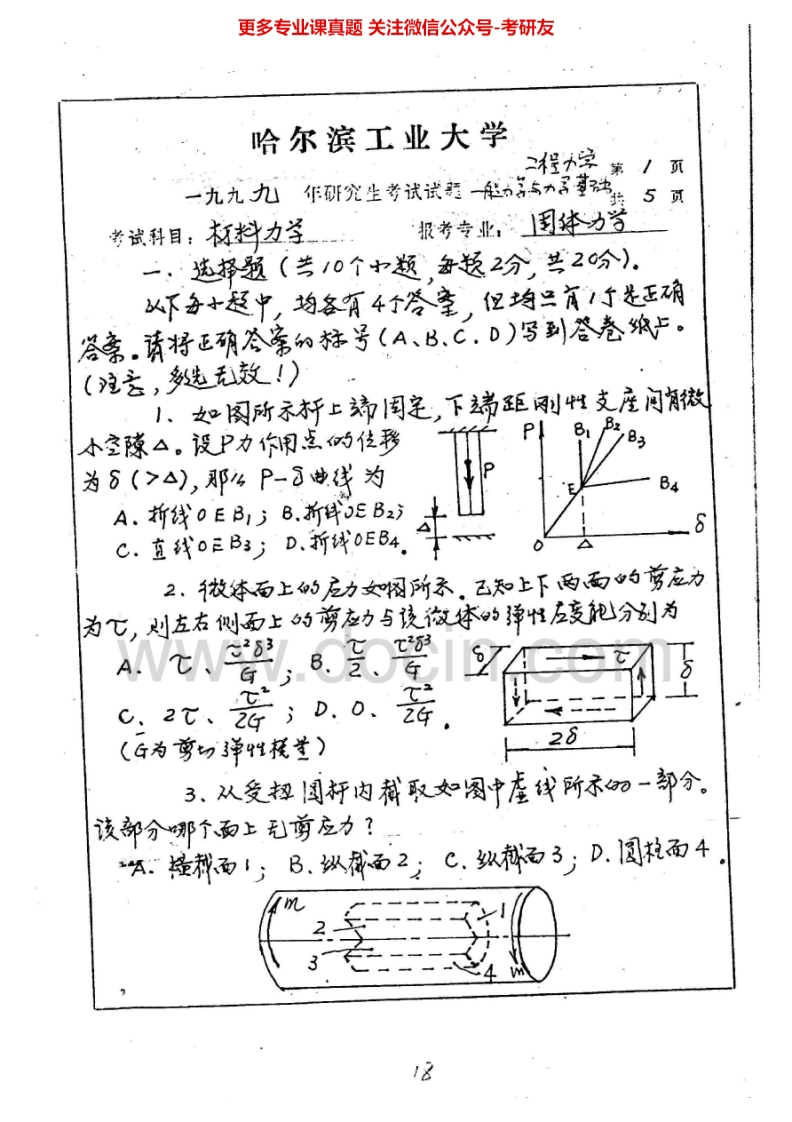 更多专业课真题 关注微信公众号-考研友
哈尔滨工业大学
工程力学 第 1 页
一九九九 年研究生考试试题 一般力学与力学基础 共 5 页
考试科目：材料力学 报考专业：固体力学
一、选择题（共10个小题，每题2分，共20分）。
以下每小题中，均各有4个答案，但均只有1个是正确
答案。请将正确答案的标号（A、B、C、D）写到答卷纸上。
（注意，多选无效！）
1、如图所示杆上端固定，下端距刚性支座间有微
小空隙Δ。设P力作用点的位移
为δ（>Δ），那么 P-δ曲线为
A. 折线OEB1；B. 折线OEB2；
C. 直线OEB3；D. 折线OEB4。
P
Δ
P
B1
B2
B3
B4
E
O
Δ
δ
2、微体面上的应力如图所示。已知上下两面的剪应力
为τ，则左右侧面上的剪应力与该微体的弹性应变能分别为
A. τ、τ²δ³/G；B. τ/2、τ²δ³/G
C. 2τ、τ²/2G；D. 0、τ²/2G。
（G为剪切弹性模量）
δ
τ
δ
2δ
3、从受扭圆杆内截取如图中虚线所示的一部分。
该部分哪个面上无剪应力？
A. 横截面1；B. 纵截面2；C. 纵截面3；D. 圆柱面4。
m
1
2
3
4
m
www.docin.com
18